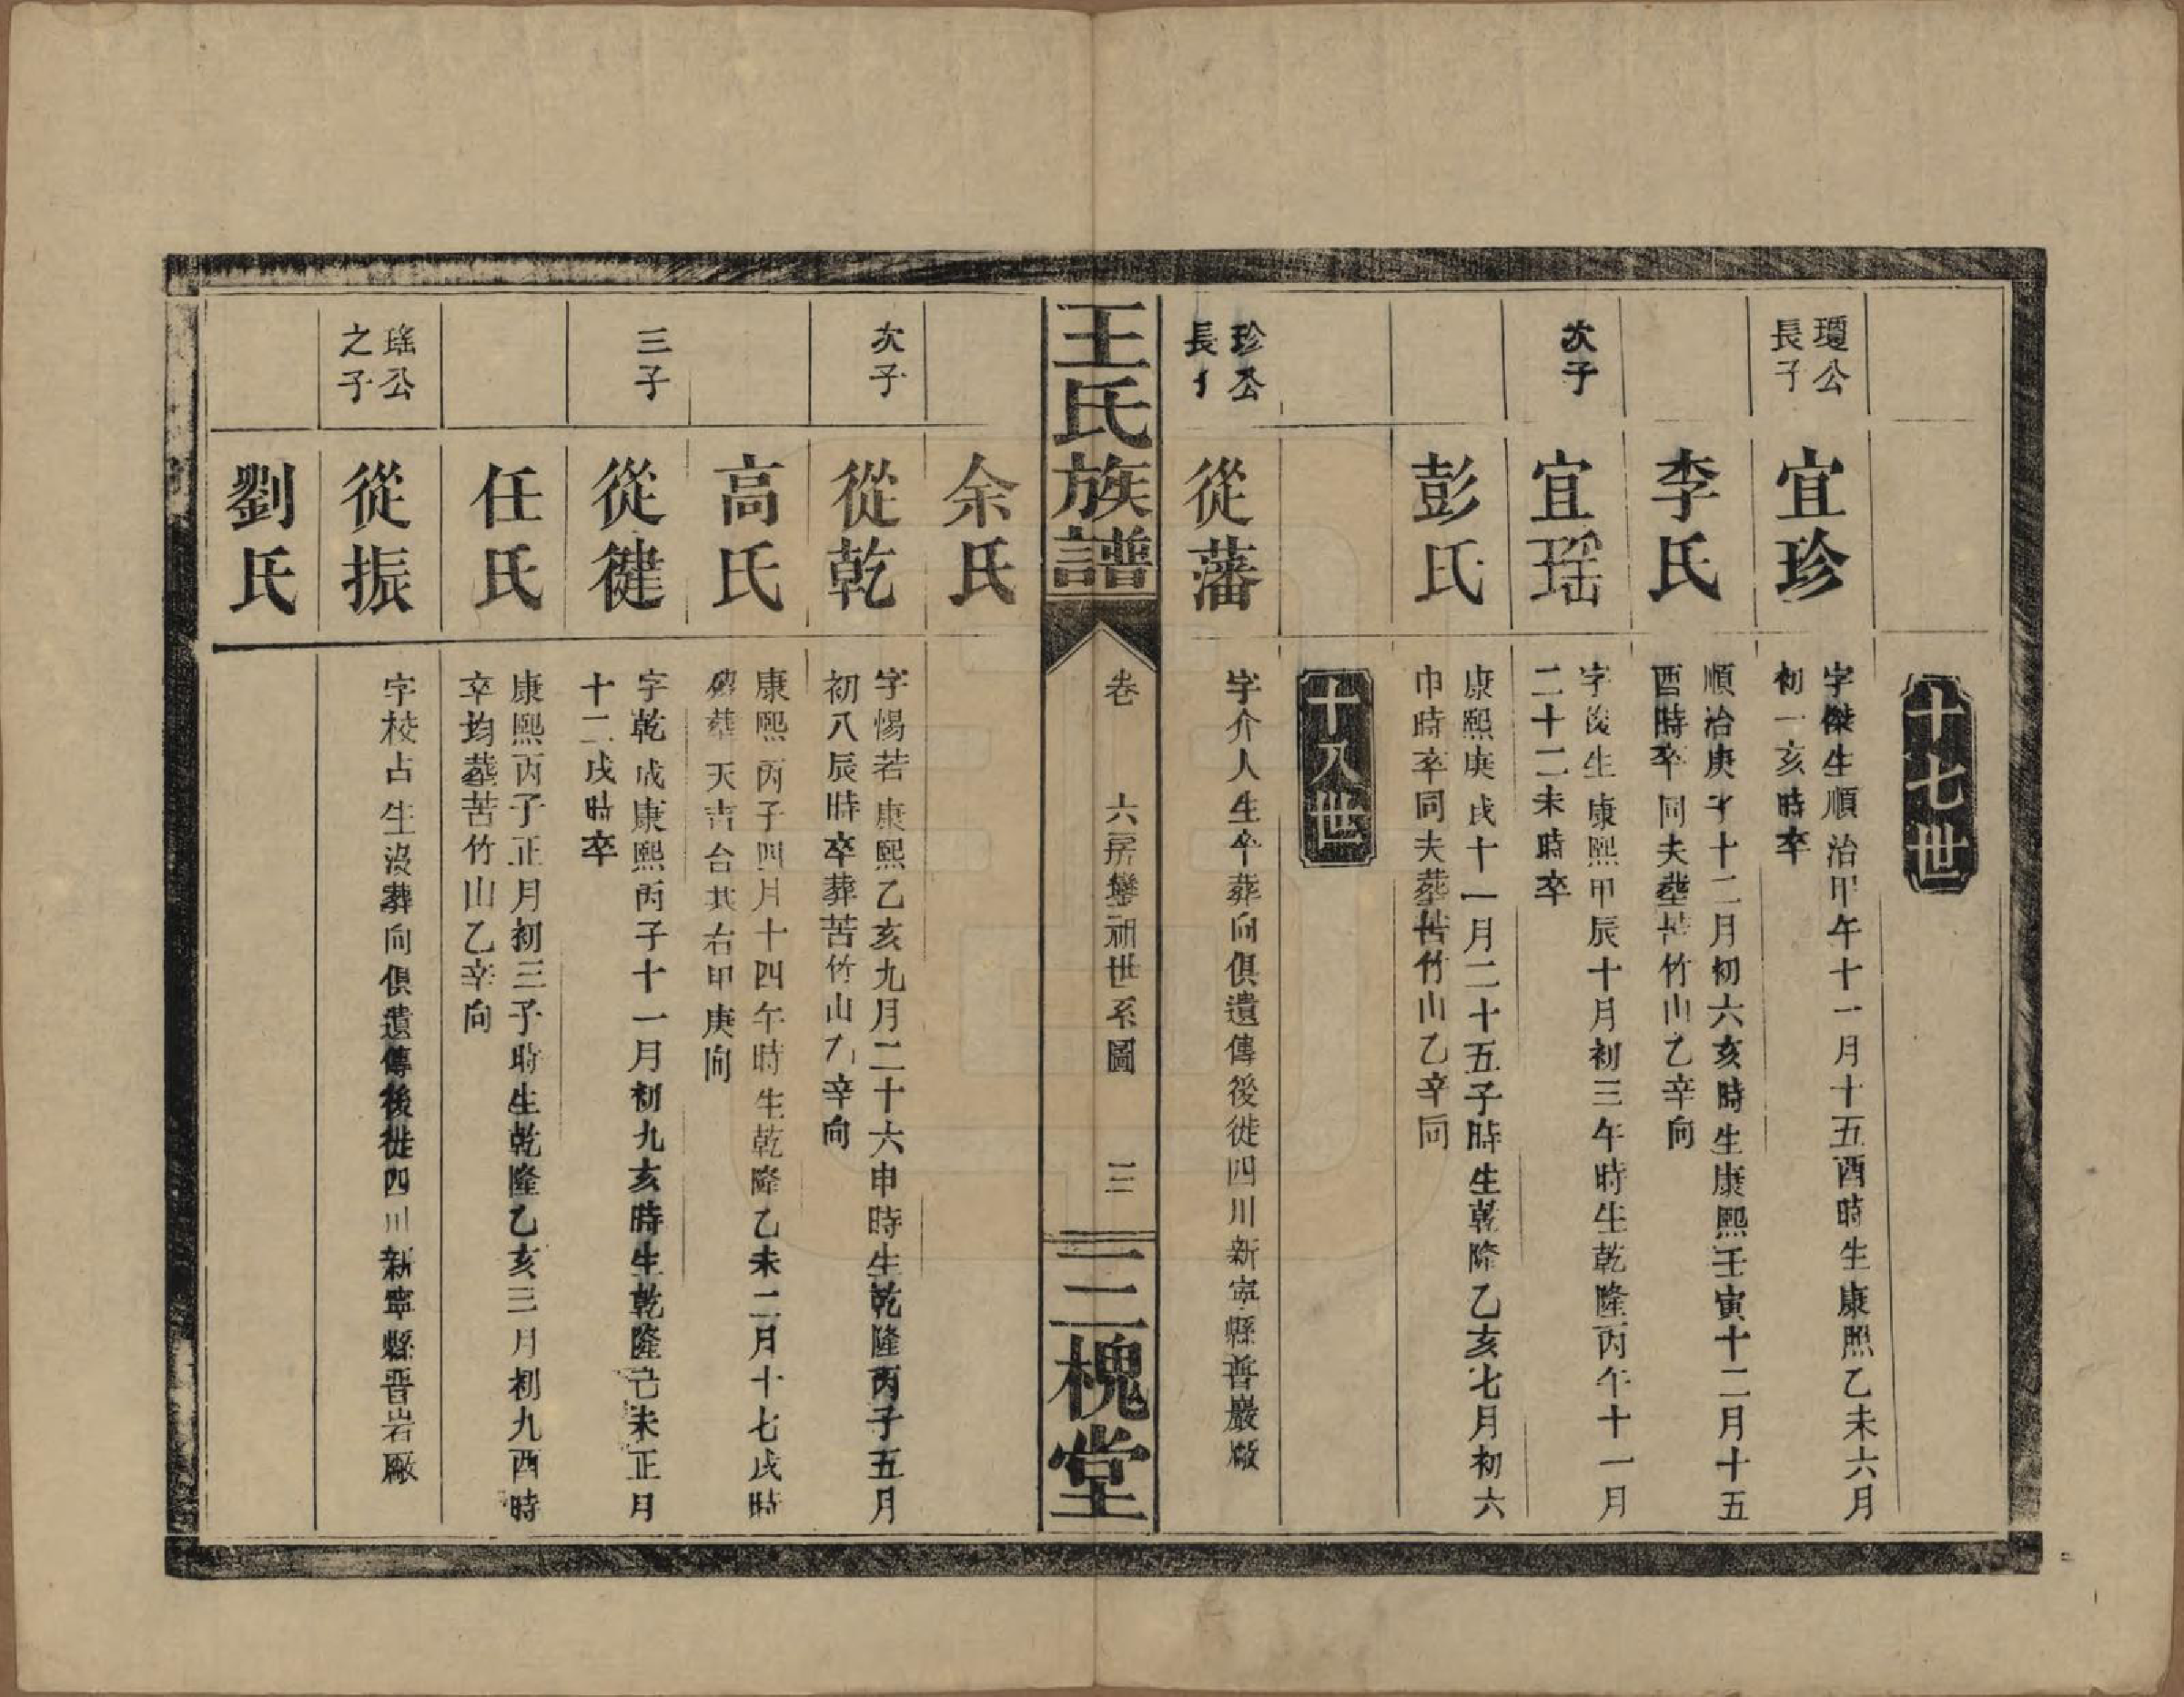 十七世
瓊公
長子
宜珍
字傑生順治甲午十一月十五酉時生康熙乙未六月
初一亥時卒
李氏
順治庚子十二月初六亥時生康熙壬寅十二月十五
酉時卒同夫塟苦竹山乙辛向
次子
宜瑤
字俊生康熙甲辰十月初三午時生乾隆丙午十一月
二十二未時卒
彭氏
康熙庚戌十一月二十五子時生乾隆乙亥七月初六
巾時卒同夫葬苦竹山乙辛向
十八世
珍公
長子
從藩
字介人生卒葬向俱遺傳後徙四川新寧縣普巖廠
王氏族譜
卷 六房鑾祖世系圖 三
三槐堂
余氏
次子
從乾
字惕若康熙乙亥九月二十六申時生乾隆丙子五月
初八辰時卒葬苦竹山乙辛向
高氏
康熙丙子四月十四午時生乾隆乙未二月十七戌時
葬天吉台其右甲庚向
三子
從健
字乾成康熙丙子十一月初九亥時生乾隆己未正月
十二戌時卒
任氏
康熙丙子正月初三子時生乾隆乙亥三月初九酉時
卒均塟苦竹山乙辛向
瑤公
之子
從振
字校占生沒葬向俱遺傳後徙四川新寧縣晋岩廠
劉氏